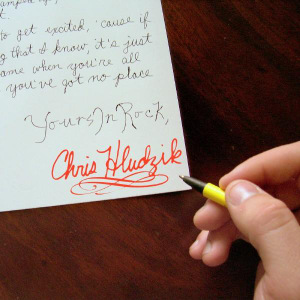 t.
to get excited, 'cause if
g that I know, it's just
ame when you're all
you've got no place
Yours In Rock,
Chris Hludzik